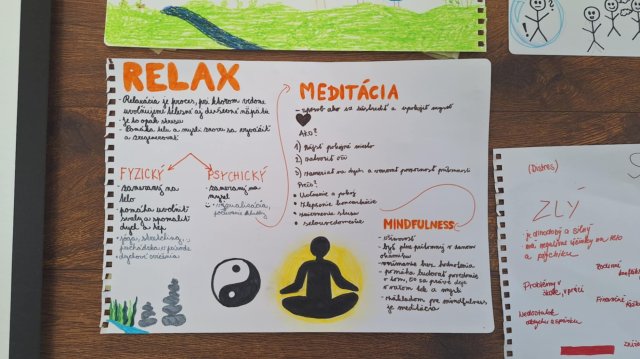 RELAX
- Relaxácia je proces, pri ktorom vedome
uvoľňujeme telesné aj duševné napätie
- je to opak stresu
- Pomáha telu a mysli znova sa vypočiť
a zregenerovať
FYZICKÝ
- zameraný na
telo
- pomáha uvoľniť
svaly a spomaliť
dych a tep
- joga, stretching,
prechádzka v prírode
- dychové cvičenia
PSYCHICKÝ
- zameraný na
mysel
- vizualizácia,
počúvanie hudby
MEDITÁCIA
- spôsob ako sa sústrediť a upokojiť mysel
AKO?
1) Nájsť pokojné miesto
2) zatvoriť oči
3) zamerať na dych a venovať pozornosť prítomnosti
Prečo?
Uvoľnenie a pokoj
Zlepšenie koncentrácie
zníženie stresu
sebauvedomenie
MINDFULNESS
- všímavosť
- byť plne prítomný v danom
okamihu
- vnímanie bez hodnotenia
- pomáha budovať povedomie
o tom, čo sa práve deje
v našom tele a mysli
- základom pre mindfulness
je meditácia
(Distres)
ZLÝ
je dlhodobý a silný
má negatívne účinky na telo
a psychiku
Problémy v
škole, v práci
Rodinné
Finančné
Nedostatok
oddychu a spánku